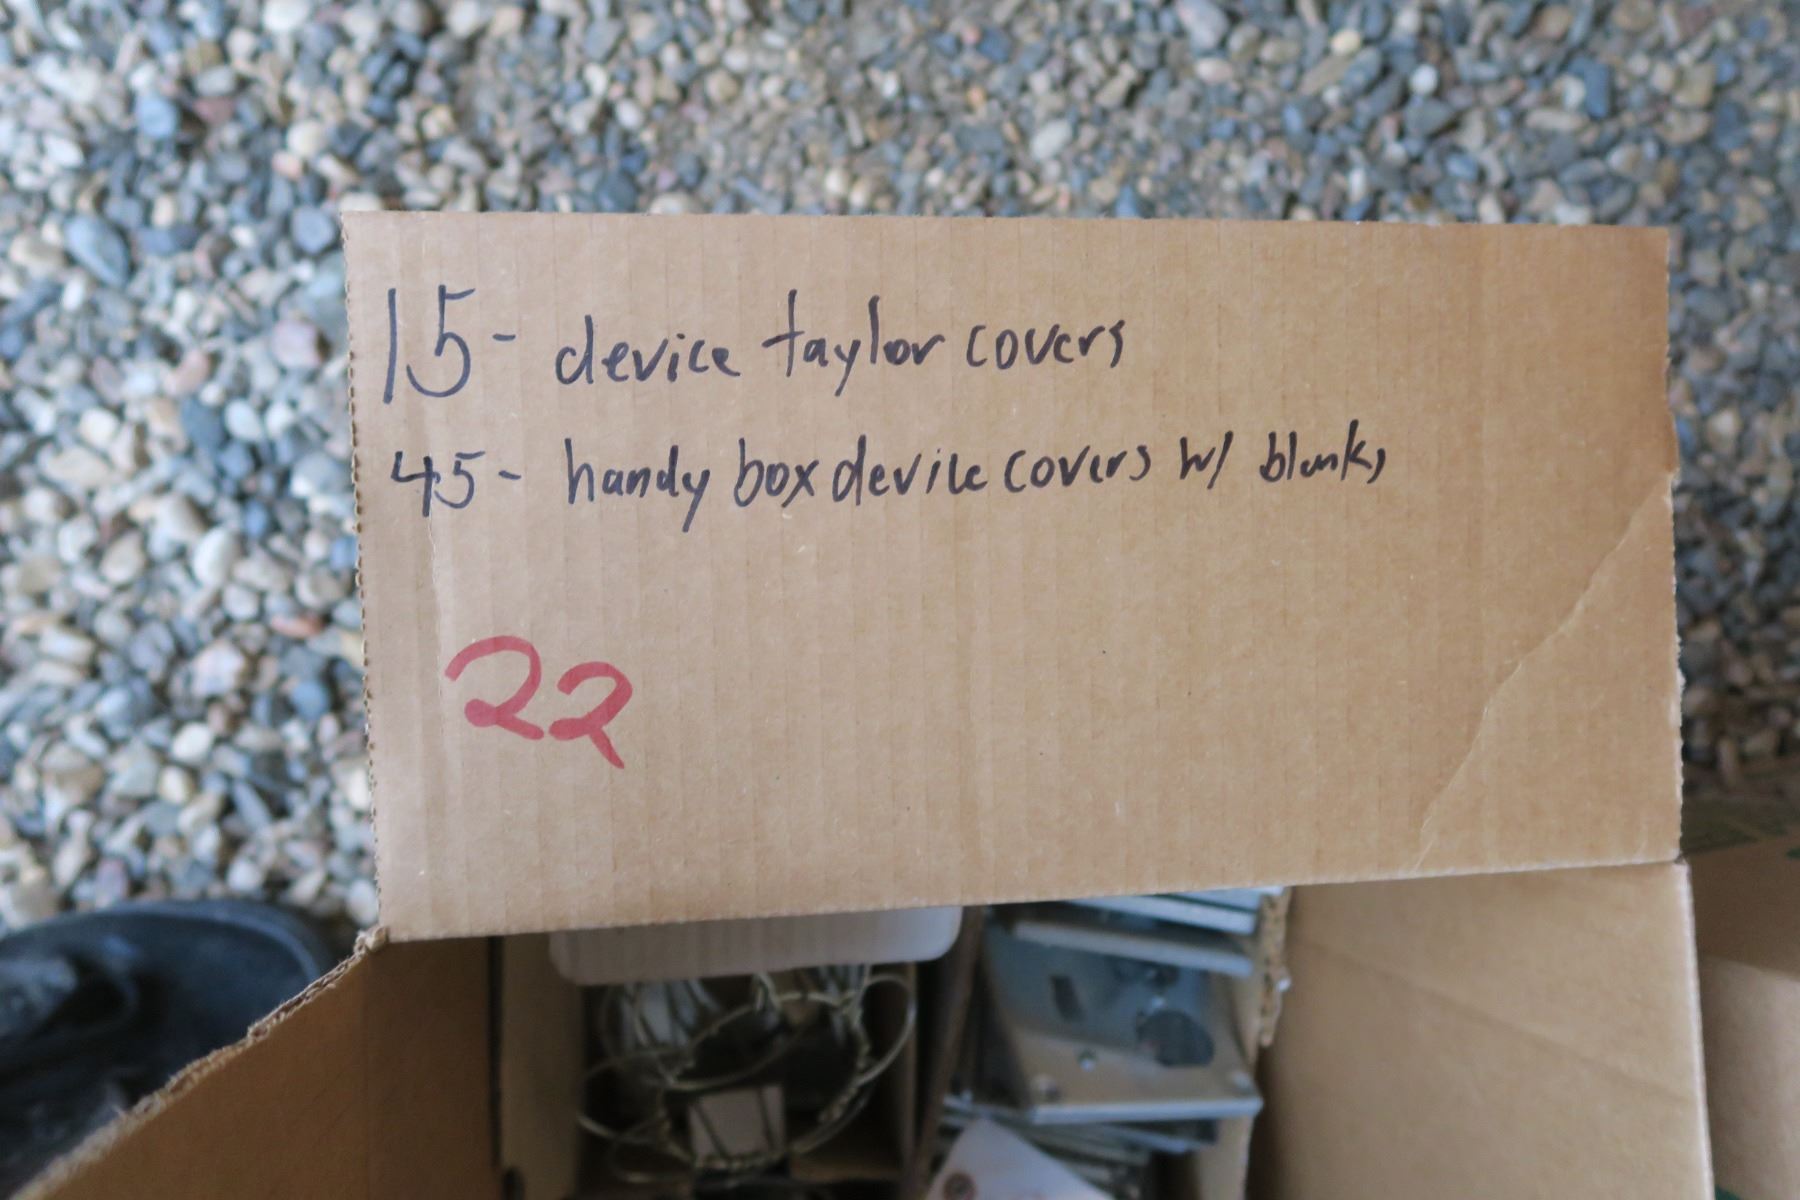 15- device taylor covers
45- handy box device covers w/ blanks
22